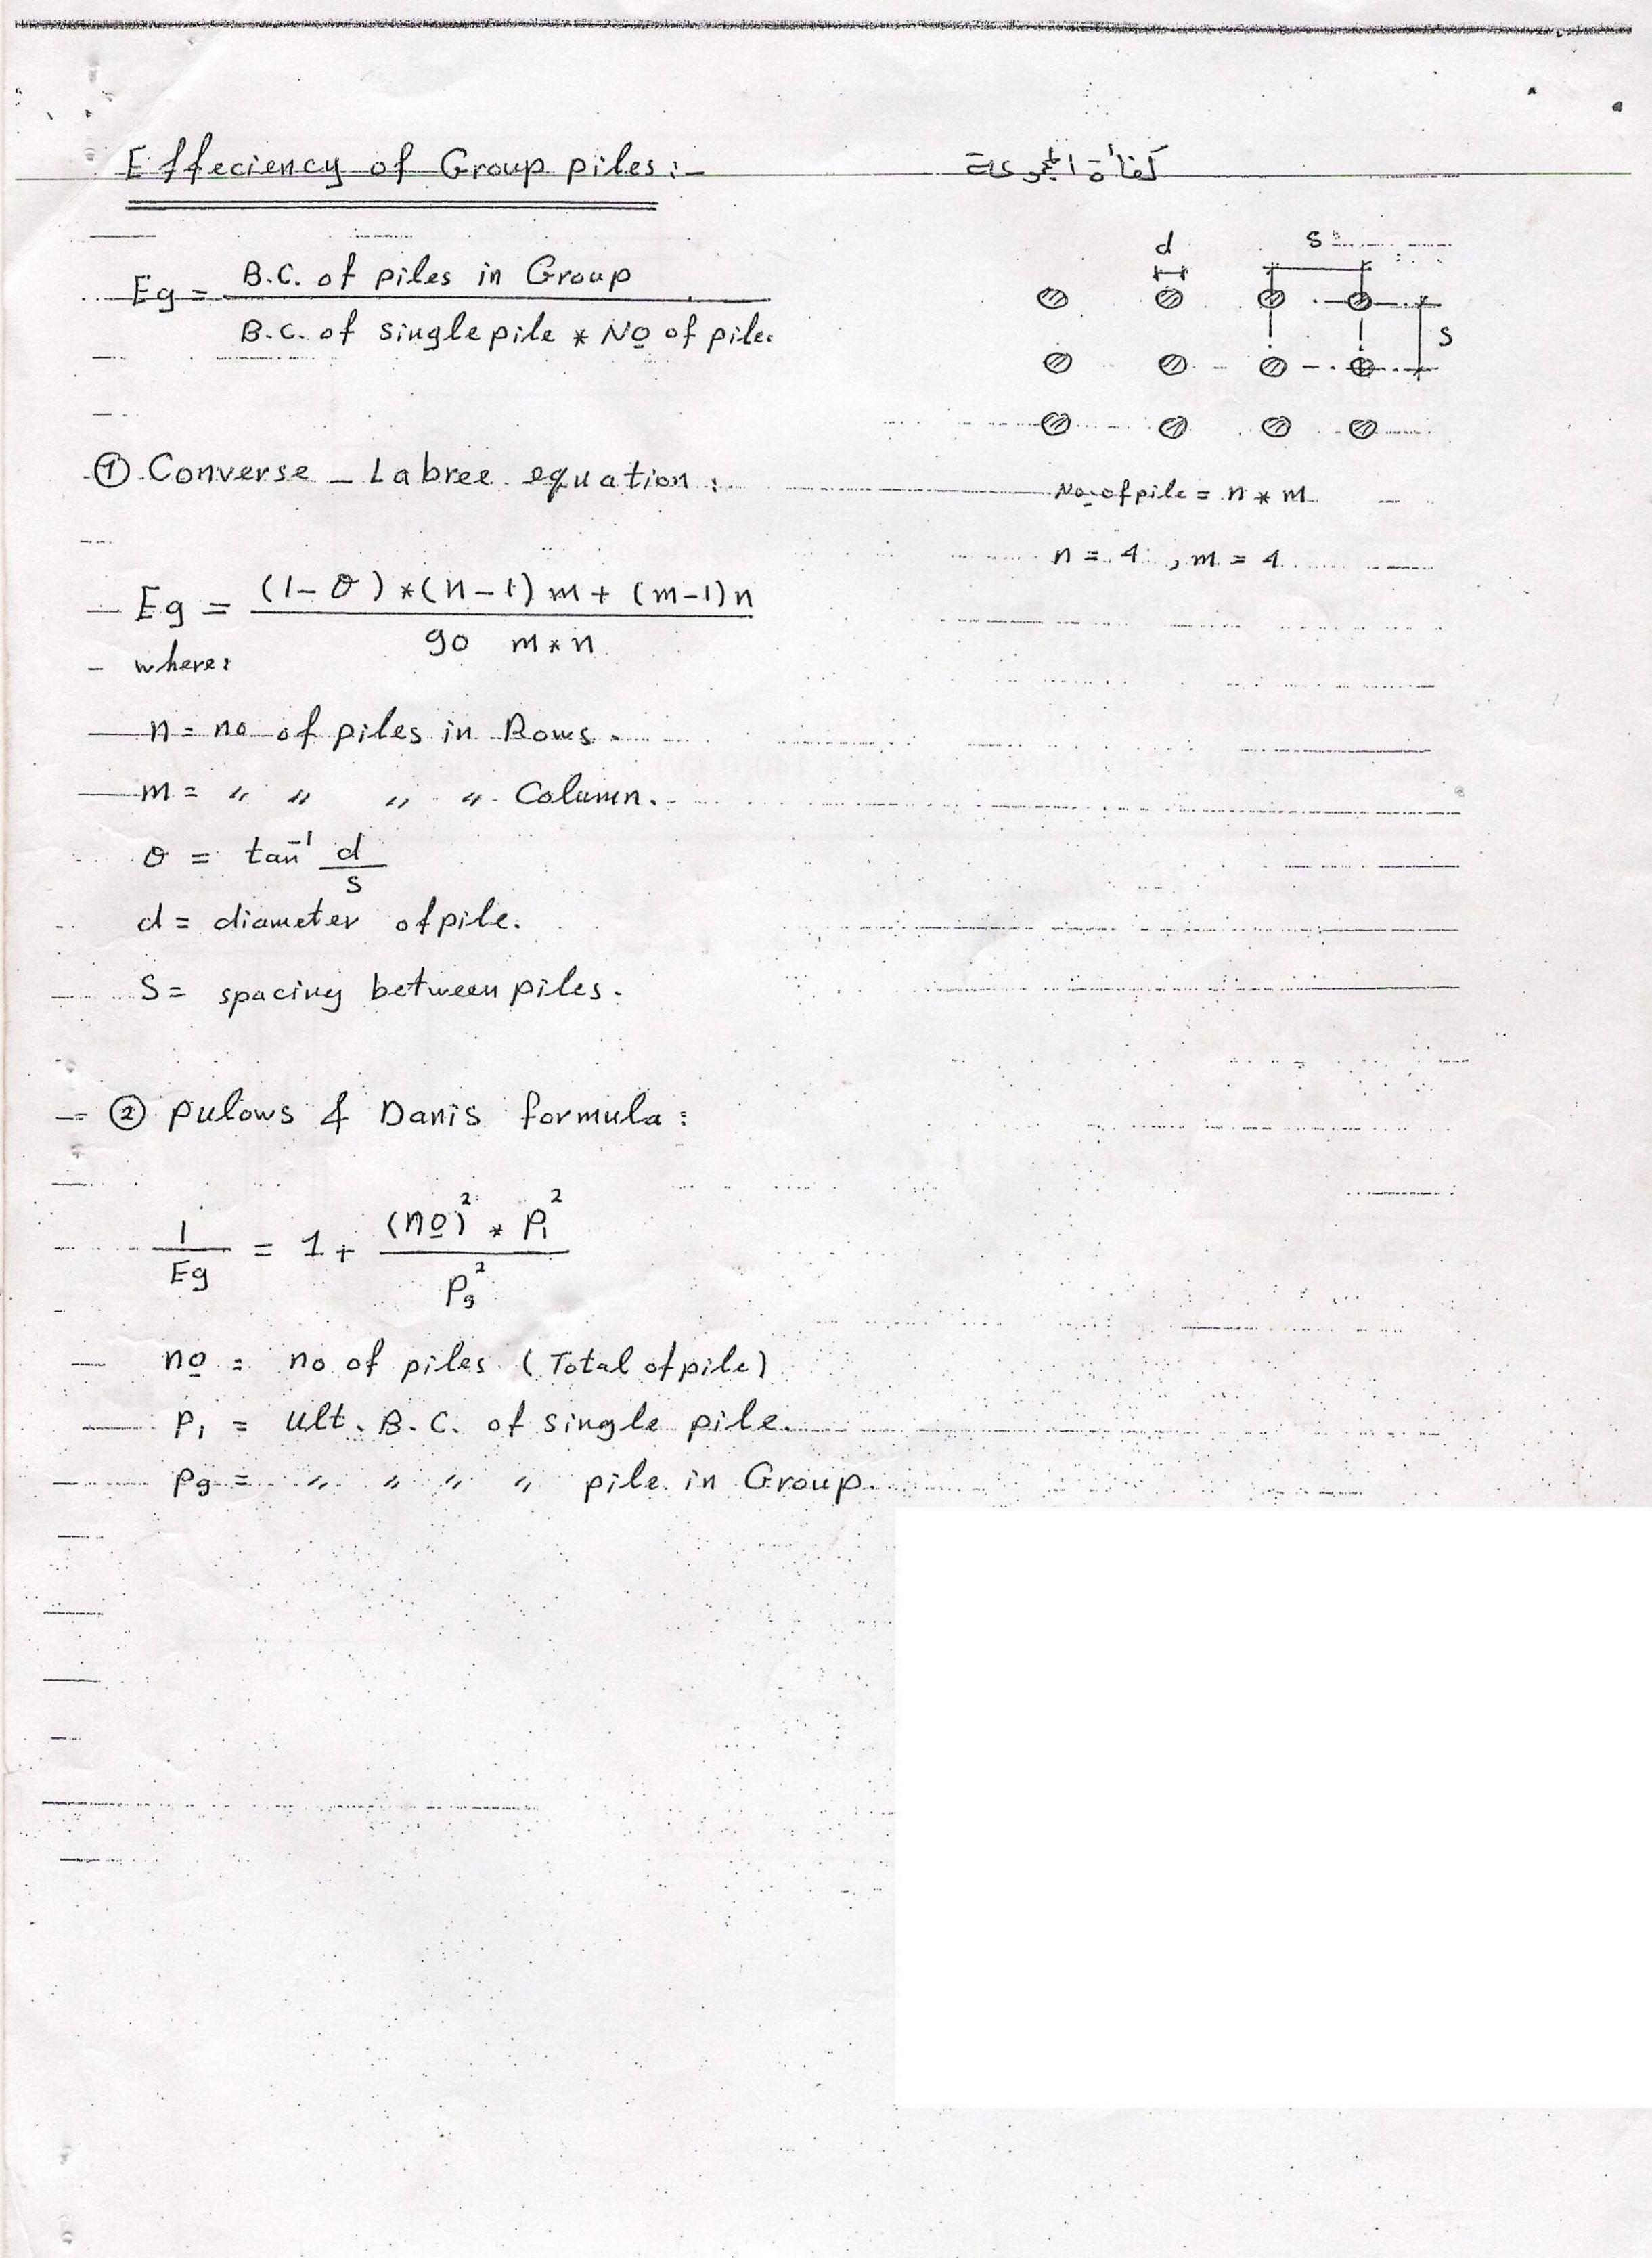 Effeciency of Group piles :-
كفاءة المجموعة
d
S
Eg = B.C. of piles in Group / B.C. of single pile * No of pile.
S
① Converse - Labree equation :
No of pile = n * m
n = 4 , m = 4
Eg = (1-θ) * (n-1) m + (m-1) n / 90 m * n
where:
n = no of piles in Rows.
m = 〃 〃 〃 〃 Column.
θ = tan⁻¹ d / s
d = diameter of pile.
S = spacing between piles.
② pulows & Danis formula :
1 / Eg = 1 + (no)² * P₁² / Pg²
no = no of piles (Total of pile)
P₁ = Ult. B.C. of single pile.
Pg = 〃 〃 〃 〃 pile in Group.